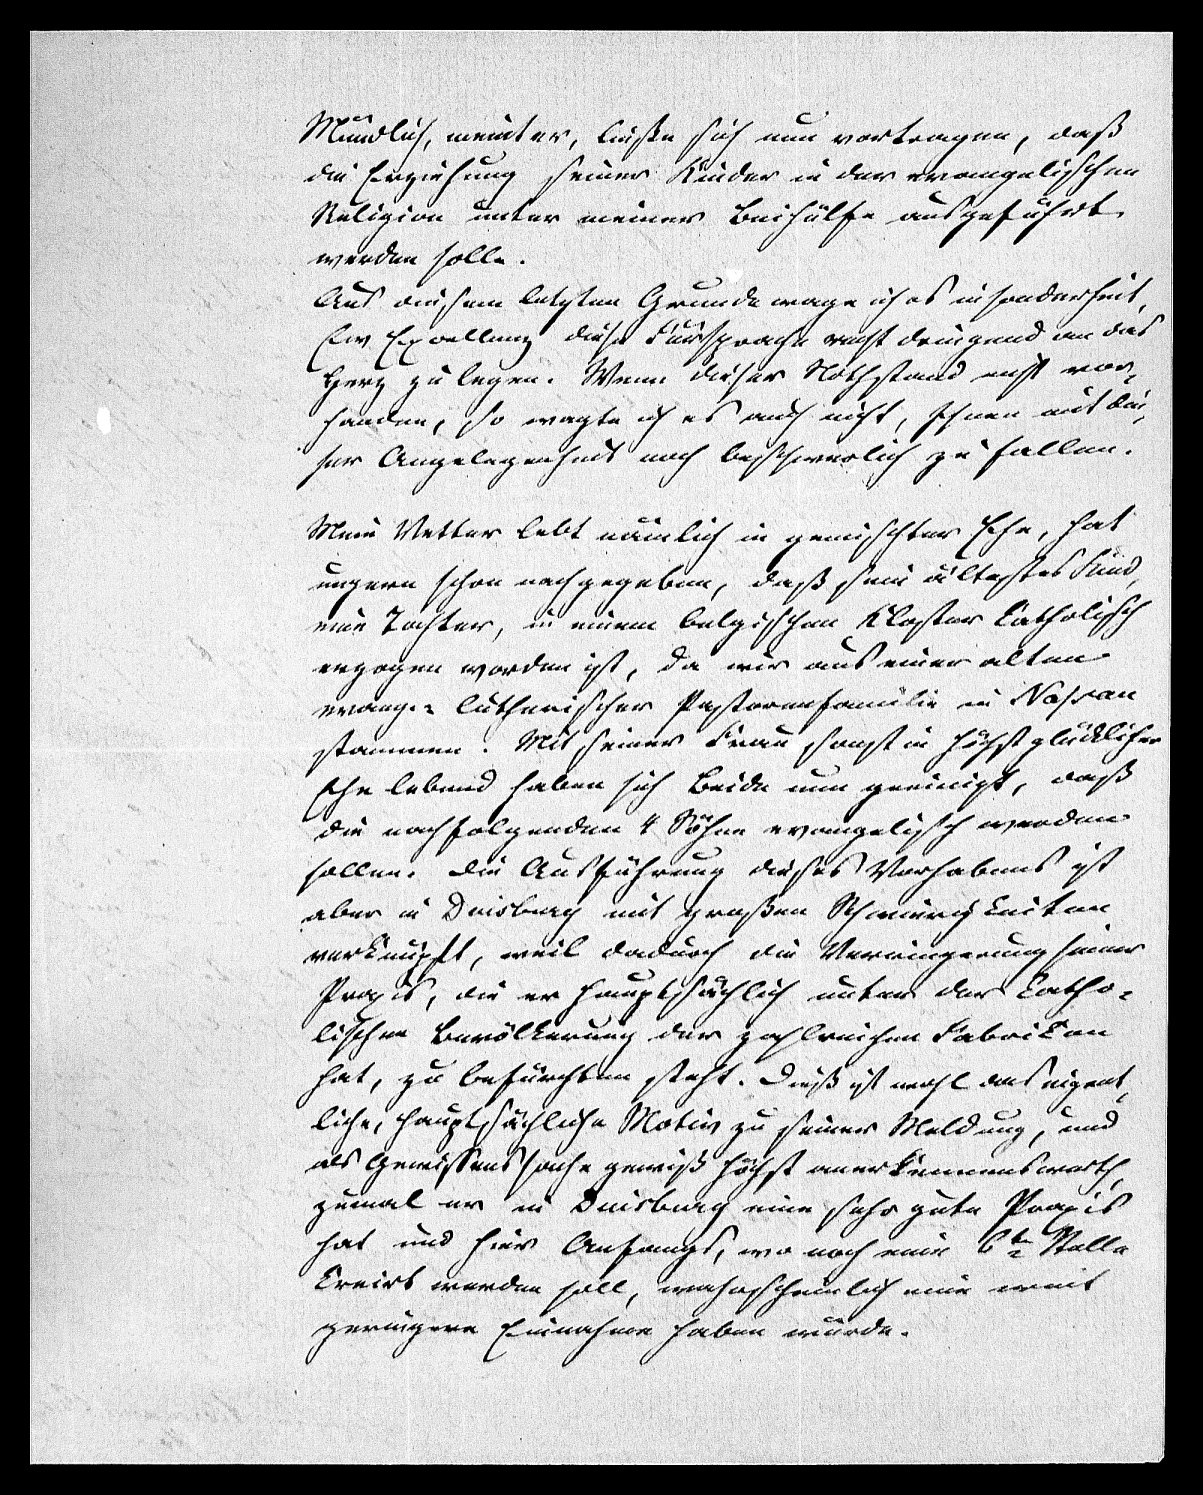 Mündlich, meint er, ließe sich nun vortragen, daß
die Erziehung seiner Kinder in der evangelischen
Religion unter meiner Beihülfe ausgeführt
werden solle.
Aus diesem letzten Grunde wage ich es insonderheit,
Ew Excellenz diese Fürsprache recht dringend an das
Herz zu legen. Wenn dieser Nothstand nicht vor-
handen, so wagte ich es auch nicht, Ihnen mit die-
ser Angelegenheit noch beschwerlich zu fallen.
Mein Vetter lebt nämlich in gemischter Ehe, hat
ungern schon nachgegeben, daß sein ältestes Kind,
eine Tochter, in einem belgischen Kloster katholisch
erzogen worden ist, da wir aus einer alten
evang.- lutherischer Pastorenfamilie in Nassau
stammen. Mit seiner Frau sonst in höchst glücklicher
Ehe lebend haben sich Beide nun geeinigt, daß
die nachfolgenden 4 Söhne evangelisch werden
sollen. Die Ausführung dieses Vorhabens ist
aber in Duisburg mit großen Schwierigkeiten
verknüpft, weil dadurch die Verringerung seiner
Praxis, die er hauptsächlich unter der katho-
lischen Bevölkerung der zahlreichen Fabriken
hat, zu befürchten steht. Dieß ist wohl das eigent-
liche, hauptsächliche Motiv zu seiner Meldung, und
als Gewissenssache gewiß höchst anerkennenswerth,
zumal er in Duisburg eine sehr gute Praxis
hat und hier Anfangs, wo noch eine 6te Stelle
kreirt werden soll, wahrscheinlich eine weit
geringere Einnahme haben würde.